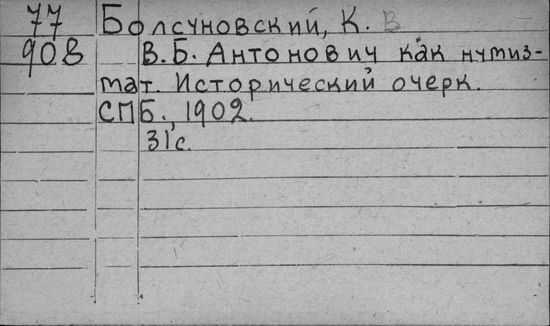 77 Болсуновский, К. В
908 В.Б. Антонович как нумиз-
мат. Исторический очерк.
СПБ., 1902.
31с.